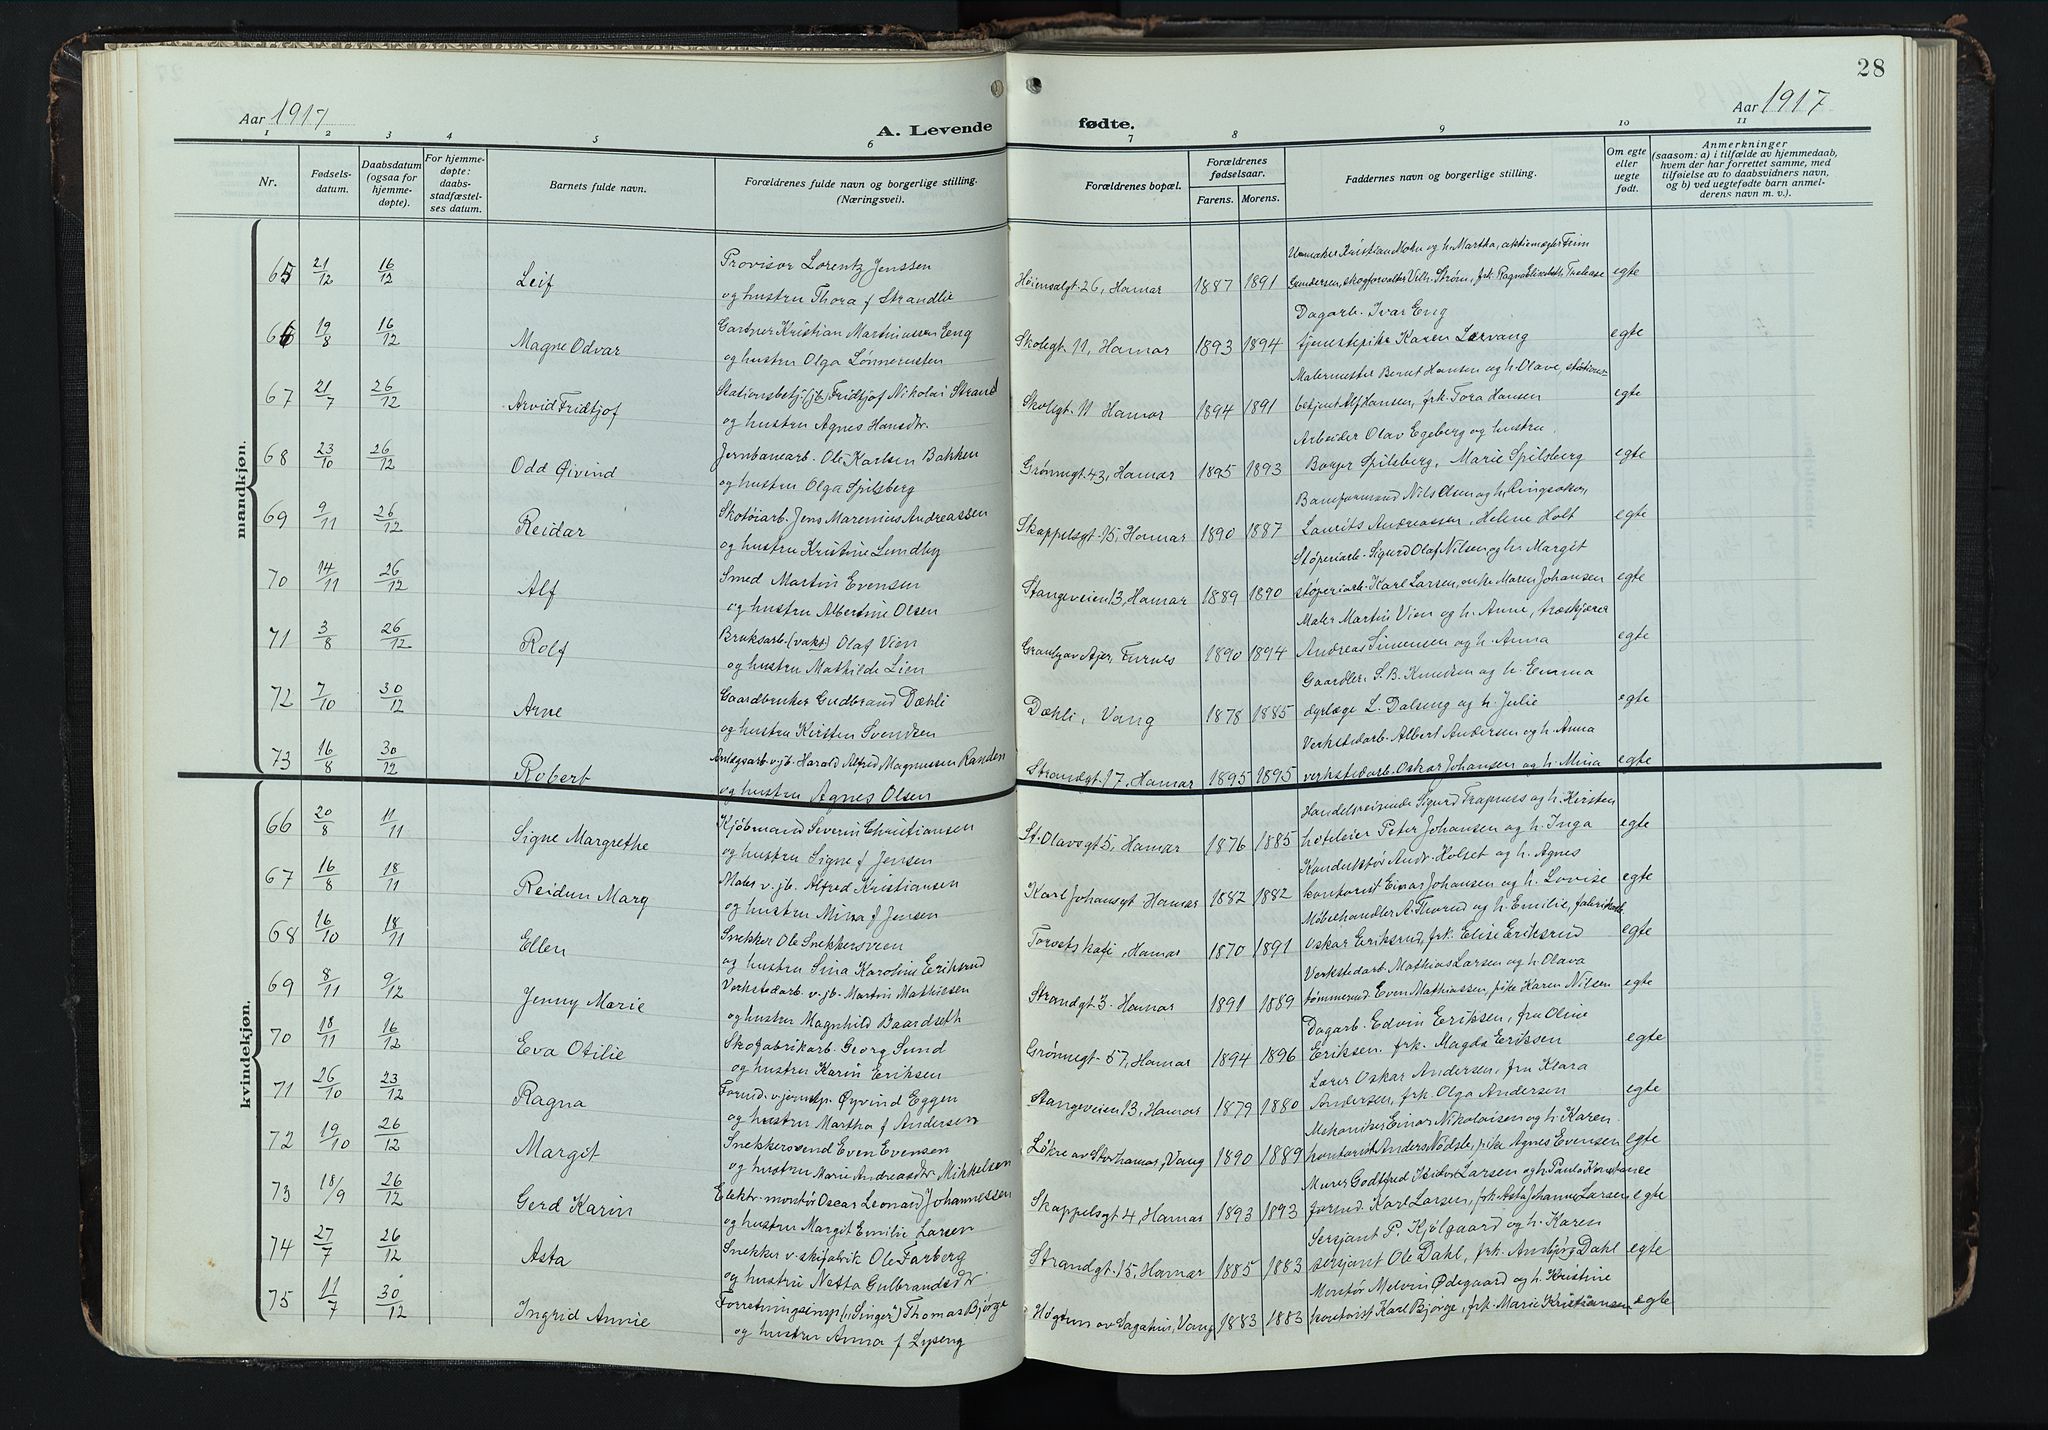 28
Aar 1917
A. Levende fødte.
Aar 1917
1 2 3 4 5 6 7 8 9 10 11
Nr.
Fødsels-
datum.
Daabsdatum
(ogsaa for
hjemme-
døpte).
For hjemme-
døpte:
daabs-
stadfæstel-
ses datum.
Barnets fulde navn.
Forældrenes fulde navn og borgerlige stilling.
(Næringsvei).
Forældrenes bopæl.
Forældrenes
fødselsaar.
Farens. Morens.
Faddernes navn og borgerlige stilling.
Om egte
eller
uegte
født.
Anmerkninger
(saasom: a) i tilfælde av hjemmedaab,
hvem der har forrettet samme, med
tilføielse av to daabsvidners navn,
og b) ved uegtefødte barn anmel-
derens navn m. v.).
mandkjøn.
65 21/12 16/12 Leif
Provisor Lorentz Jenssen
og hustru Thora f Strandlie
Høiensalgt. 26, Hamar 1887 1891
Kristian Holm og h. Martha, aktiemægler
Gundersen, skogforvalter Vilh. Strøm, frk. Ragna Elisabeth egte
66 19/8 16/12 Magne Odvar
Gartner Kristian Martinussen Eng
og hustru Olga
Skolegt. 11, Hamar 1893 1894
Dagarb. Ivar Eng
tjenestepike Karen Lervang egte
67 21/7 26/12 Arvid Fridtjof
Stationsbetj. (jb) Fridtjof Nikolai Strand
og hustru Agnes Hansdtr.
Skolegt. 11 Hamar 1894 1891
Malermester Bernt Hansen og h. Olave, stations-
betjent Alf Hansen, frk. Tora Hansen egte
68 23/10 26/12 Odd Øivind
Jernbanearb. Ole Karlsen Bakken
og hustru Olga Spilsberg
Grønnegt. 43, Hamar 1895 1893
Arbeider Olav Egeberg og hustru
Borger Spilsberg, Marie Spilsberg egte
69 9/11 26/12 Reidar
Skotøiarb. Jens Marenius Andreassen
og hustru Kristine Lundby
Skappelsgt. 15, Hamar 1890 1887
Baneformand Nils Olsen og h. Ringsaker,
Laurits Andreassen, Helene Holt egte
70 14/11 26/12 Alf
Smed Martin Evensen
og hustru Albertine Olsen
Stangeveien 13, Hamar 1889 1890
Støperiarb. Sigurd Olaf Nilsen og h. Margit
støperiarb. Karl Larsen, enke Maren Johansen egte
71 3/8 26/12 Rolf
Bruksarb. (vakt) Olaf Vien
og hustru Mathilde Lien
Granly av Ajer, Furnes 1890 1894
Maler Martin Vien og h. Anne, træskjærer
Andreas Simensen og h. Anna egte
72 7/10 30/12 Arne
Gaardbruker Gudbrand Dæhli
og hustru Kirsten Svendsen
Dæhli, Vang 1878 1885
Gaardbr. S. B. Knudsen og h. Emma
dyrlæge L. Dalseng og h. Julie egte
73 16/8 30/12 Robert
Anlegsarb. v. jb. Harald Alfred Magnussen Randen
og hustru Agnes Olsen
Strandgt. 17, Hamar 1895 1895
Verkstedarb. Albert Andersen og h. Anna
verkstedarb. Oskar Johansen og h. Mina egte
kvindekjøn.
66 20/8 11/11 Signe Margrethe
Kjøbmand Severin Christiansen
og hustru Signe f Jensen
St. Olavsgt 5, Hamar 1876 1885
Handelsreisende Sigurd Trapness og h. Kirsten
hoteleier Peter Johansen og h. Inga egte
67 16/8 18/11 Reidun Marg
Maler v. jb. Alfred Kristiansen
og hustru Mina f Jensen
Karl Johansgt Hamar 1882 1882
Konduktør Andr. Holset og h. Agnes
kontorist Einar Johansen og h. Lovise egte
68 16/10 18/11 Ellen
Snekker Ole Snekkersveen
og hustru Sina Karoline Eriksrud
Torvets kafe, Hamar 1870 1891
Møbelhandler A. Thorud og h. Emilie,
Oskar Eriksrud, frk. Elise Eriksrud egte
69 8/11 9/12 Jenny Marie
Verkstedarb. v. jb. Martin Mathisen
og hustru Magnhild Baardseth
Strandgt 3. Hamar 1891 1889
Verkstedarb. Mathias Larsen og h. Olava
tømmermd Even Mathiassen, pike Karen Nilsen egte
70 18/11 16/12 Eva Otilie
Skofabrikarb. Georg Sund
og hustru Karin Eriksen
Grønnegt. 57, Hamar 1894 1896
Dagarb. Edvin Eriksen, fru Oline
Eriksen. frk. Magda Eriksen egte
71 26/10 23/12 Ragna
Formd. v. Øyvind Eggen
og hustru Martha f Andersen
Stangeveien 13, Hamar 1879 1880
Lærer Oskar Andersen, fru Klara
Andersen, frk. Olga Andersen egte
72 19/10 26/12 Margit
Snekkersvend Even Evensen
og hustru Marie Andreasdtr Mikkelsen
Løkre av Storhamar, Vang 1890 1889
Mekaniker Einar Nikolaisen og h. Karen
kontorist Anders Nødste, pike Agnes Evensen egte
73 18/9 26/12 Gerd Karin
Elektr. montør Oscar Leonard Johannessen
og hustru Margit Emilie Larsen
Skappelsgt 4, Hamar 1893 1893
Murer Godtfred Isidor Larsen og h. Paula Konstance
formd. Karl Larsen, frk. Asta Johanne Larsen egte
74 27/7 26/12 Asta
Snekker v. skifabrik Ole Farberg
og hustru Netta Gulbrandsdtr
Strandgt. 15, Hamar 1885 1883
Sersjant P. Kjølgaard og h. Karen
sersjant Ole Dahl, frk. Ambjørg Dahl egte
75 11/7 30/12 Ingrid Annie
Forretningsinsp. ("Singer") Thomas Bjørge
og hustru Anna f Lyseng
Høgtun av Sagatun, Vang 1883 1883
Montør Melvin Ødegaard og h. Kristine
kontorist Karl Bjørge, frk. Marie Kristiansen egte